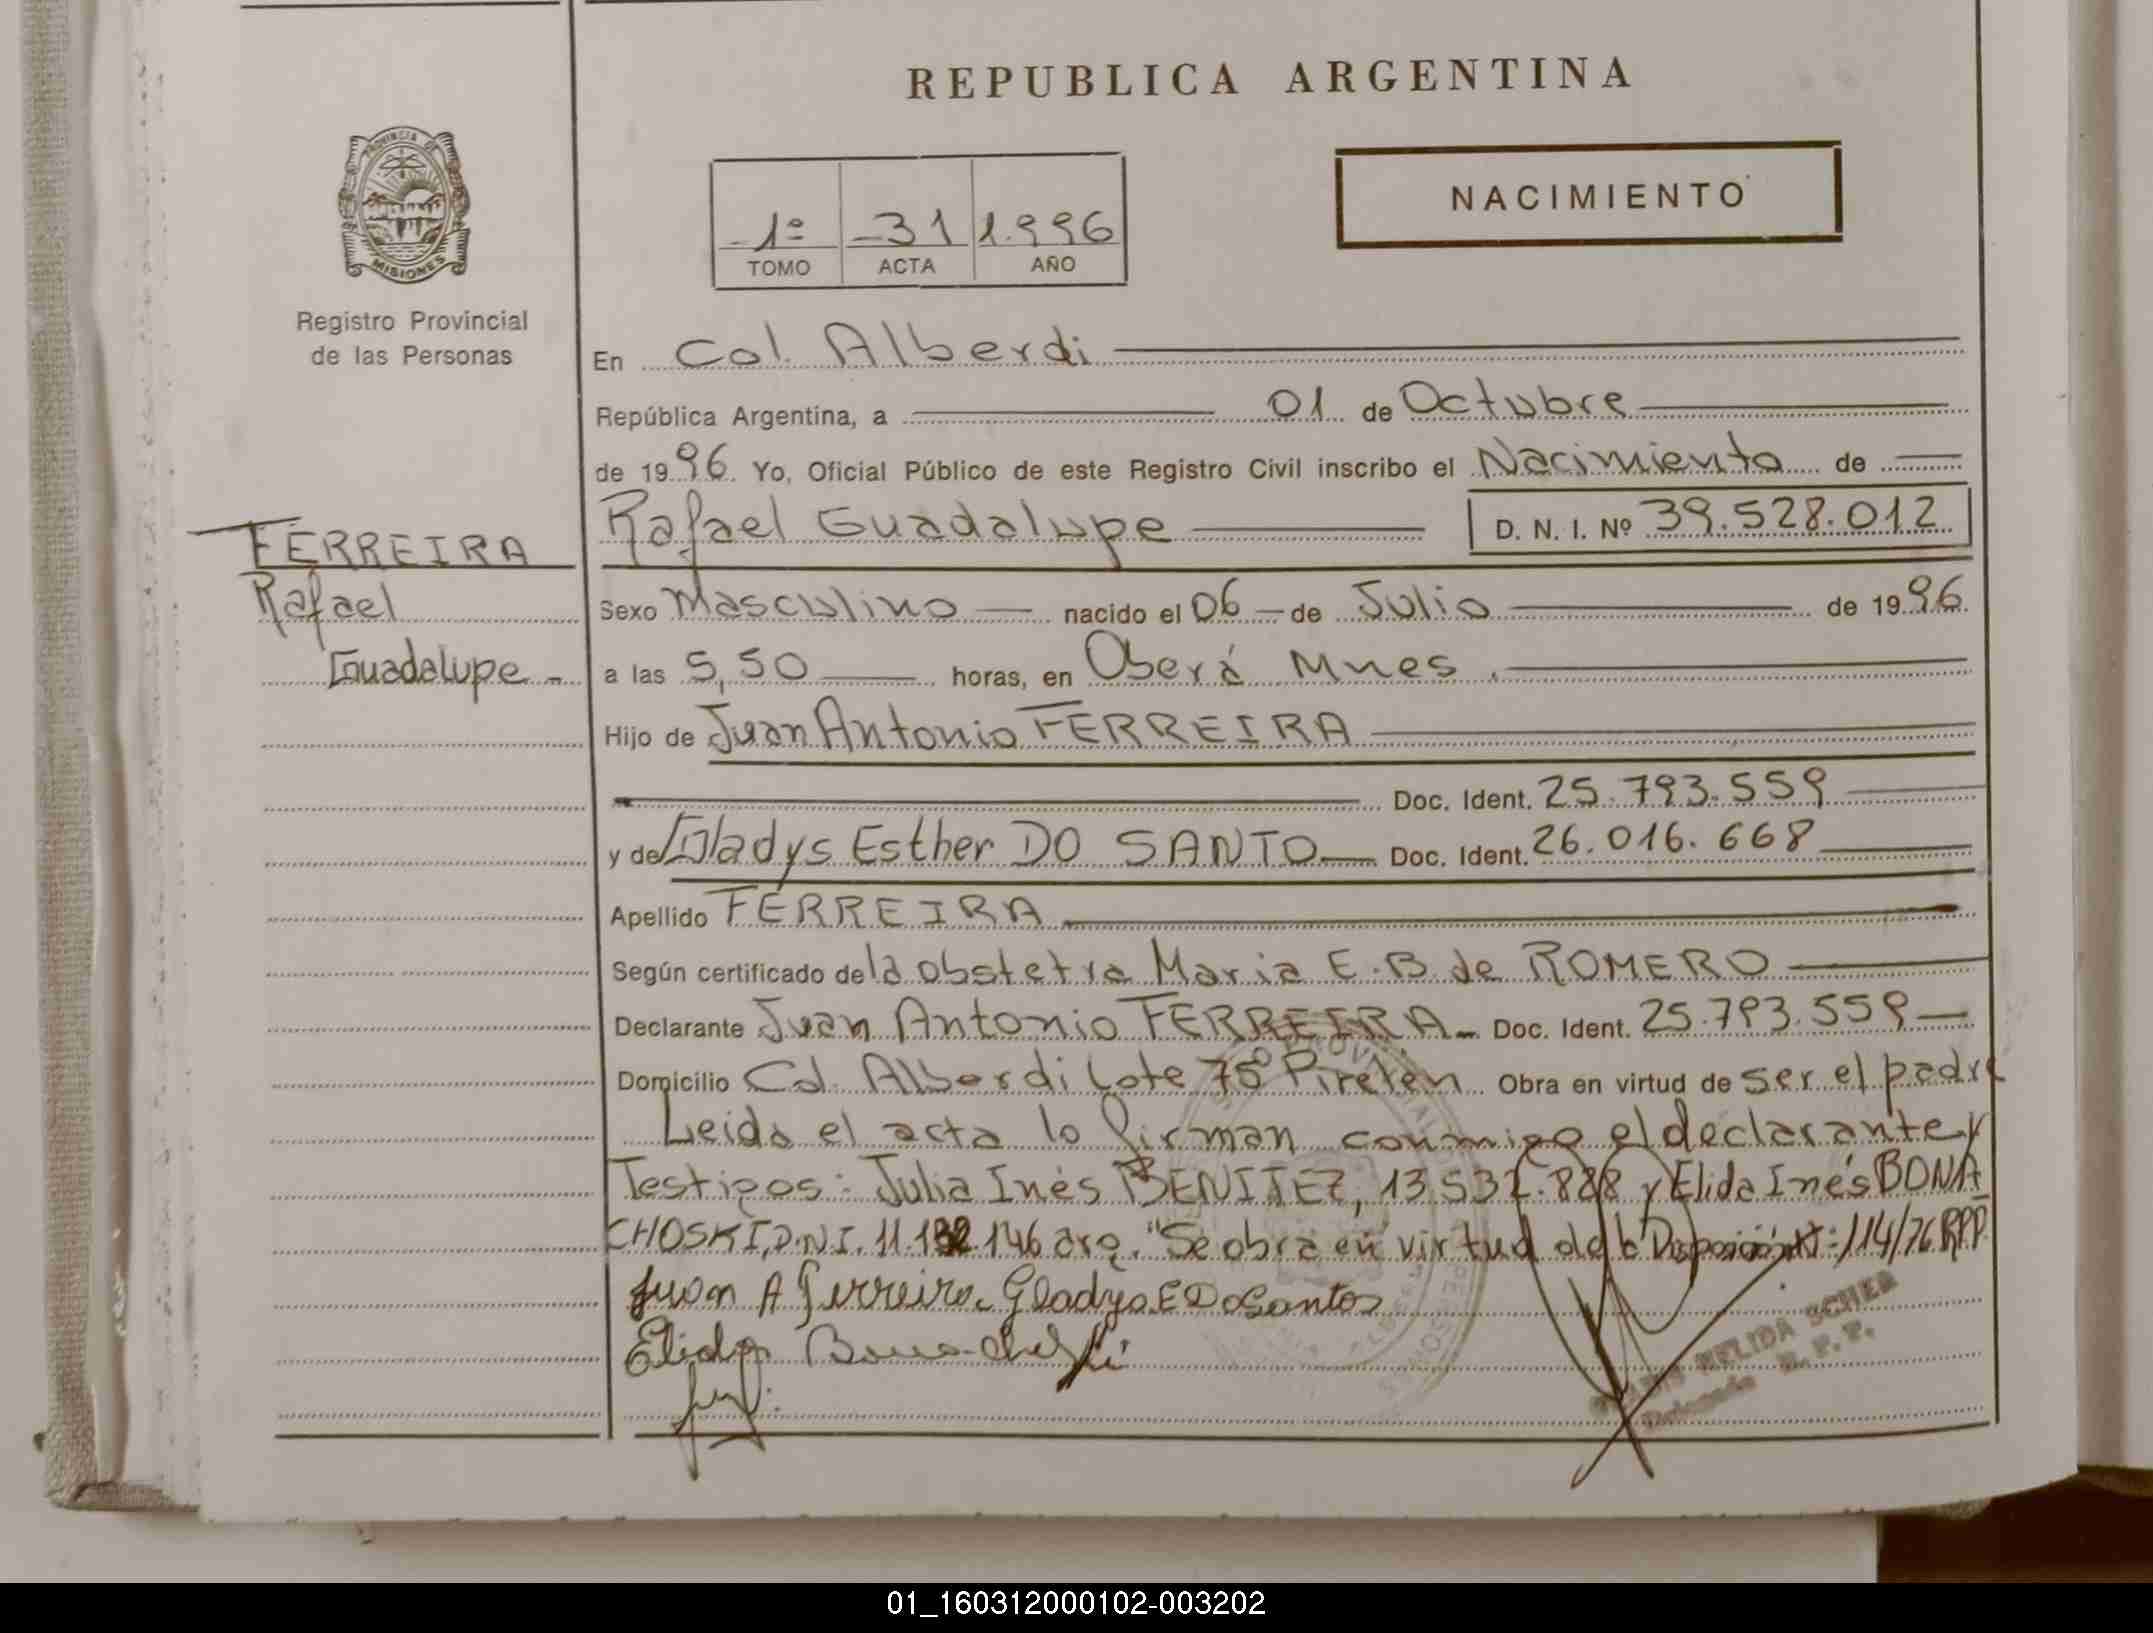 REPUBLICA ARGENTINA
PROVINCIA DE
MISIONES
Registro Provincial
de las Personas
-1º -31 1.996
TOMO ACTA AÑO
NACIMIENTO
En Col. Alberdi
República Argentina, a 01 de Octubre
de 1996. Yo, Oficial Público de este Registro Civil inscribo el Nacimiento de
Rafael Guadalupe D. N. I. Nº 39.528.012
FERREIRA
Rafael
Guadalupe -
Sexo Masculino nacido el 06 de Julio de 1996
a las 5,50 horas, en Oberá Mnes.
Hijo de Juan Antonio FERREIRA
Doc. Ident. 25.793.559
y de Gladys Esther DO SANTO Doc. Ident. 26.016.668
Apellido FERREIRA
Según certificado de la obstetra Maria E.B. de ROMERO
Declarante Juan Antonio FERREIRA Doc. Ident. 25.793.559
Domicilio Col. Alberdi Lote 75º Obra en virtud de ser el padre
Leida el acta lo firman conmigo el declarante y
Testigos: Julia Inés BENITEZ, y Elida Inés BONA
CHOSKI, D.N.I. arg. "Se obra en virtud de la 114/76 RPP
Juan A Ferreira Gladys E Do Santos
Elida
NELIDA SCHER